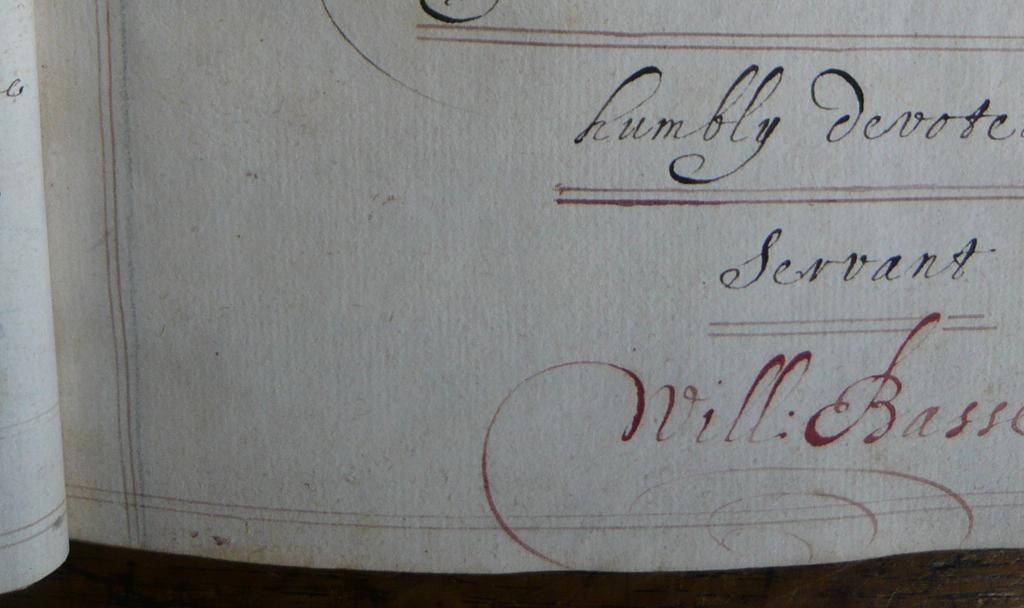 humbly devote
Servant
Will: Basse